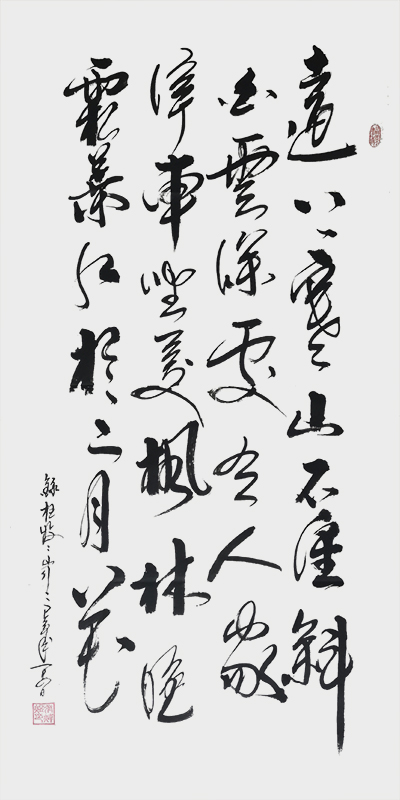 遠上寒山石徑斜
白雲深處有人家
停車坐愛楓林晚
霜葉紅於二月花
錄杜牧山行